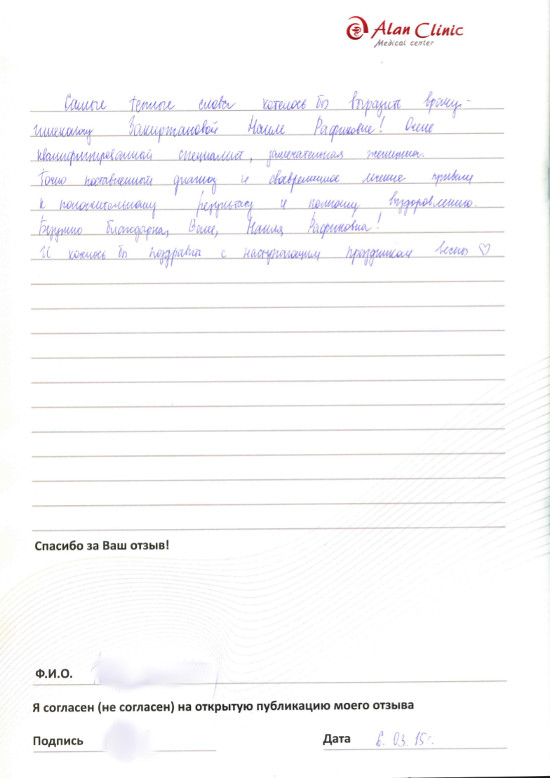 Alan Clinic
Medical center
Самые теплые слова хотелось бы выразить врачу-
гинекологу Закиртановой Наиле Рафиковне! Очень
квалифицированный специалист, замечательная женщина.
Точно поставленный диагноз и своевременное лечение привели
к положительному результату и полному выздоровлению.
Безумно благодарна, Вам, Наиля Рафиковна!
И хотелось бы поздравить с наступающим праздником весны ♡
Спасибо за Ваш отзыв!
Ф.И.О.
Я согласен (не согласен) на открытую публикацию моего отзыва
Подпись
Дата 6.03.15г.